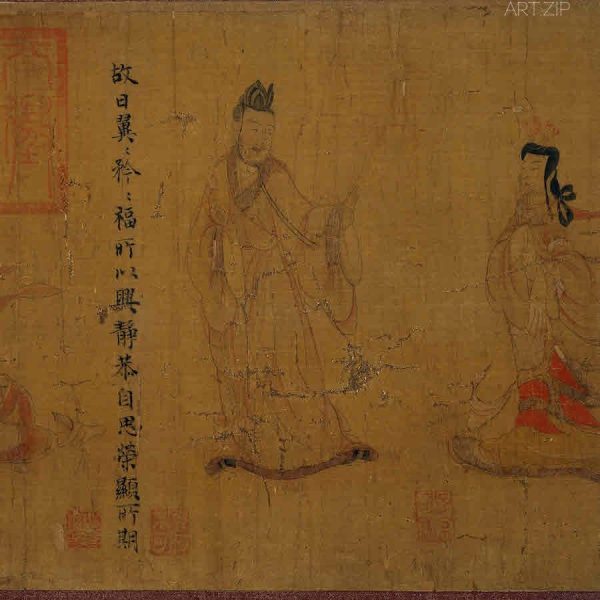 ART.ZIP
故曰翼〻矜〻福所以興靜恭自思榮顯所期